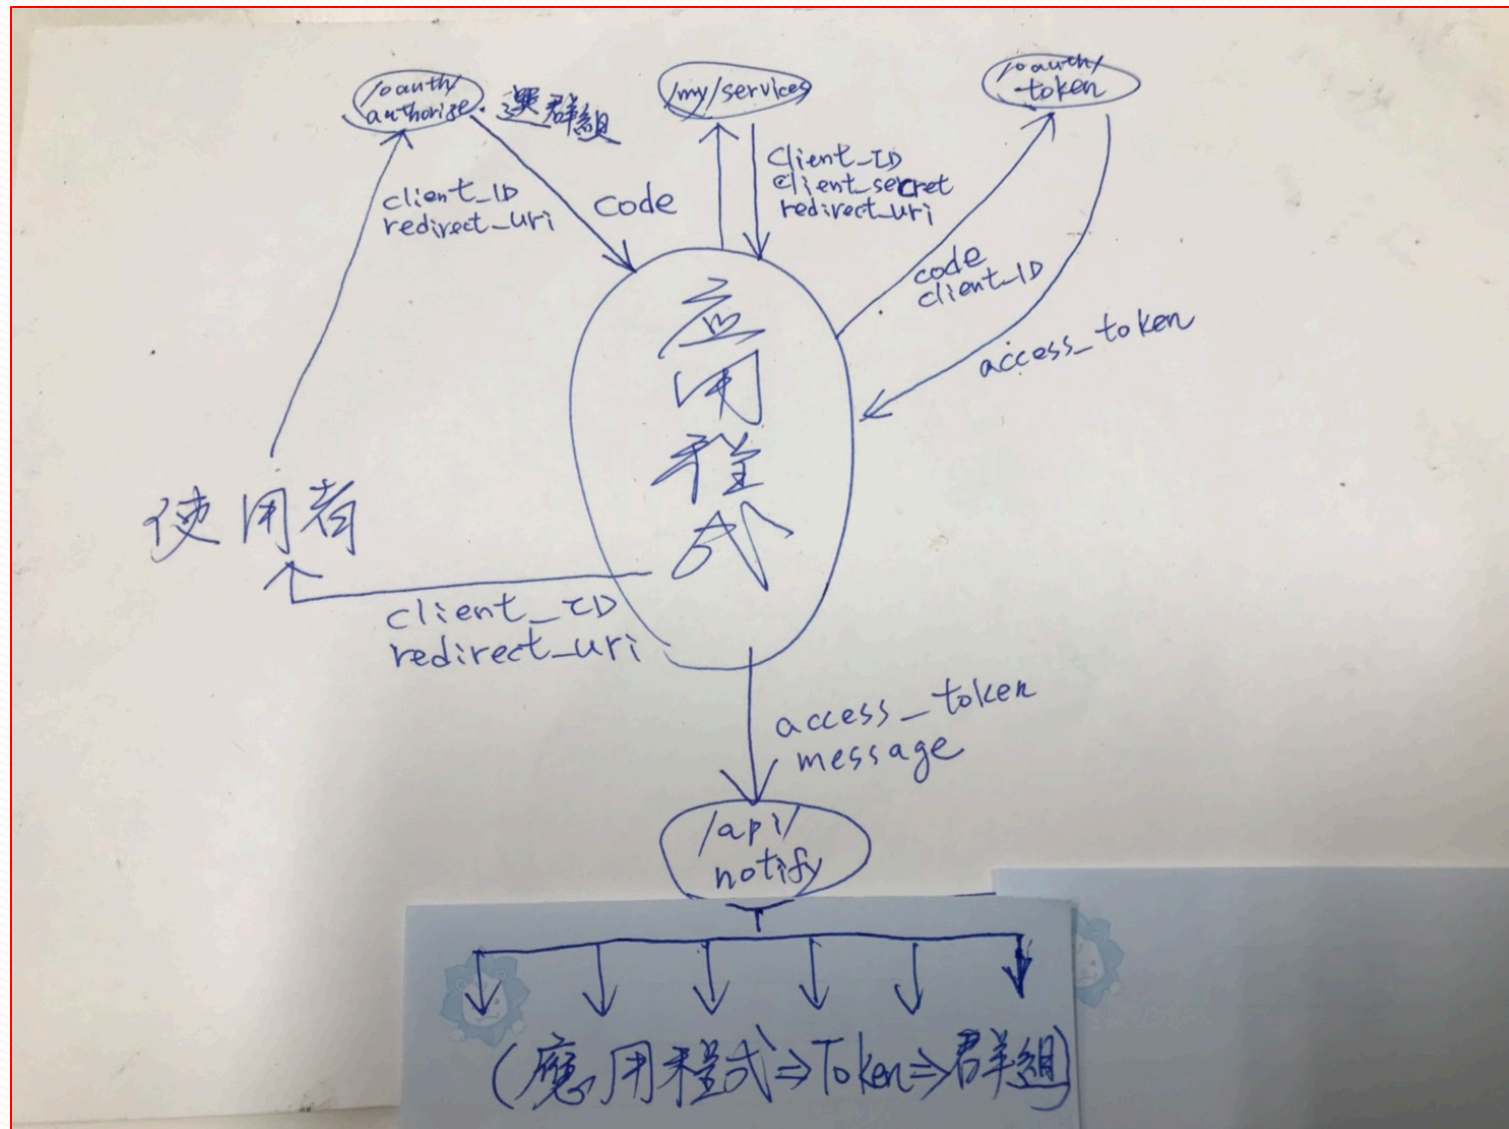 /oauth/
authorize
.選群組
/my/services
/oauth/
token
client_ID
redirect_uri
code
client_ID
client_secret
redirect_uri
code
client_ID
access_token
应
用
程
式
使用者
client_ID
redirect_uri
access_token
message
/api/
notify
(應用程式⇒Token⇒群組)